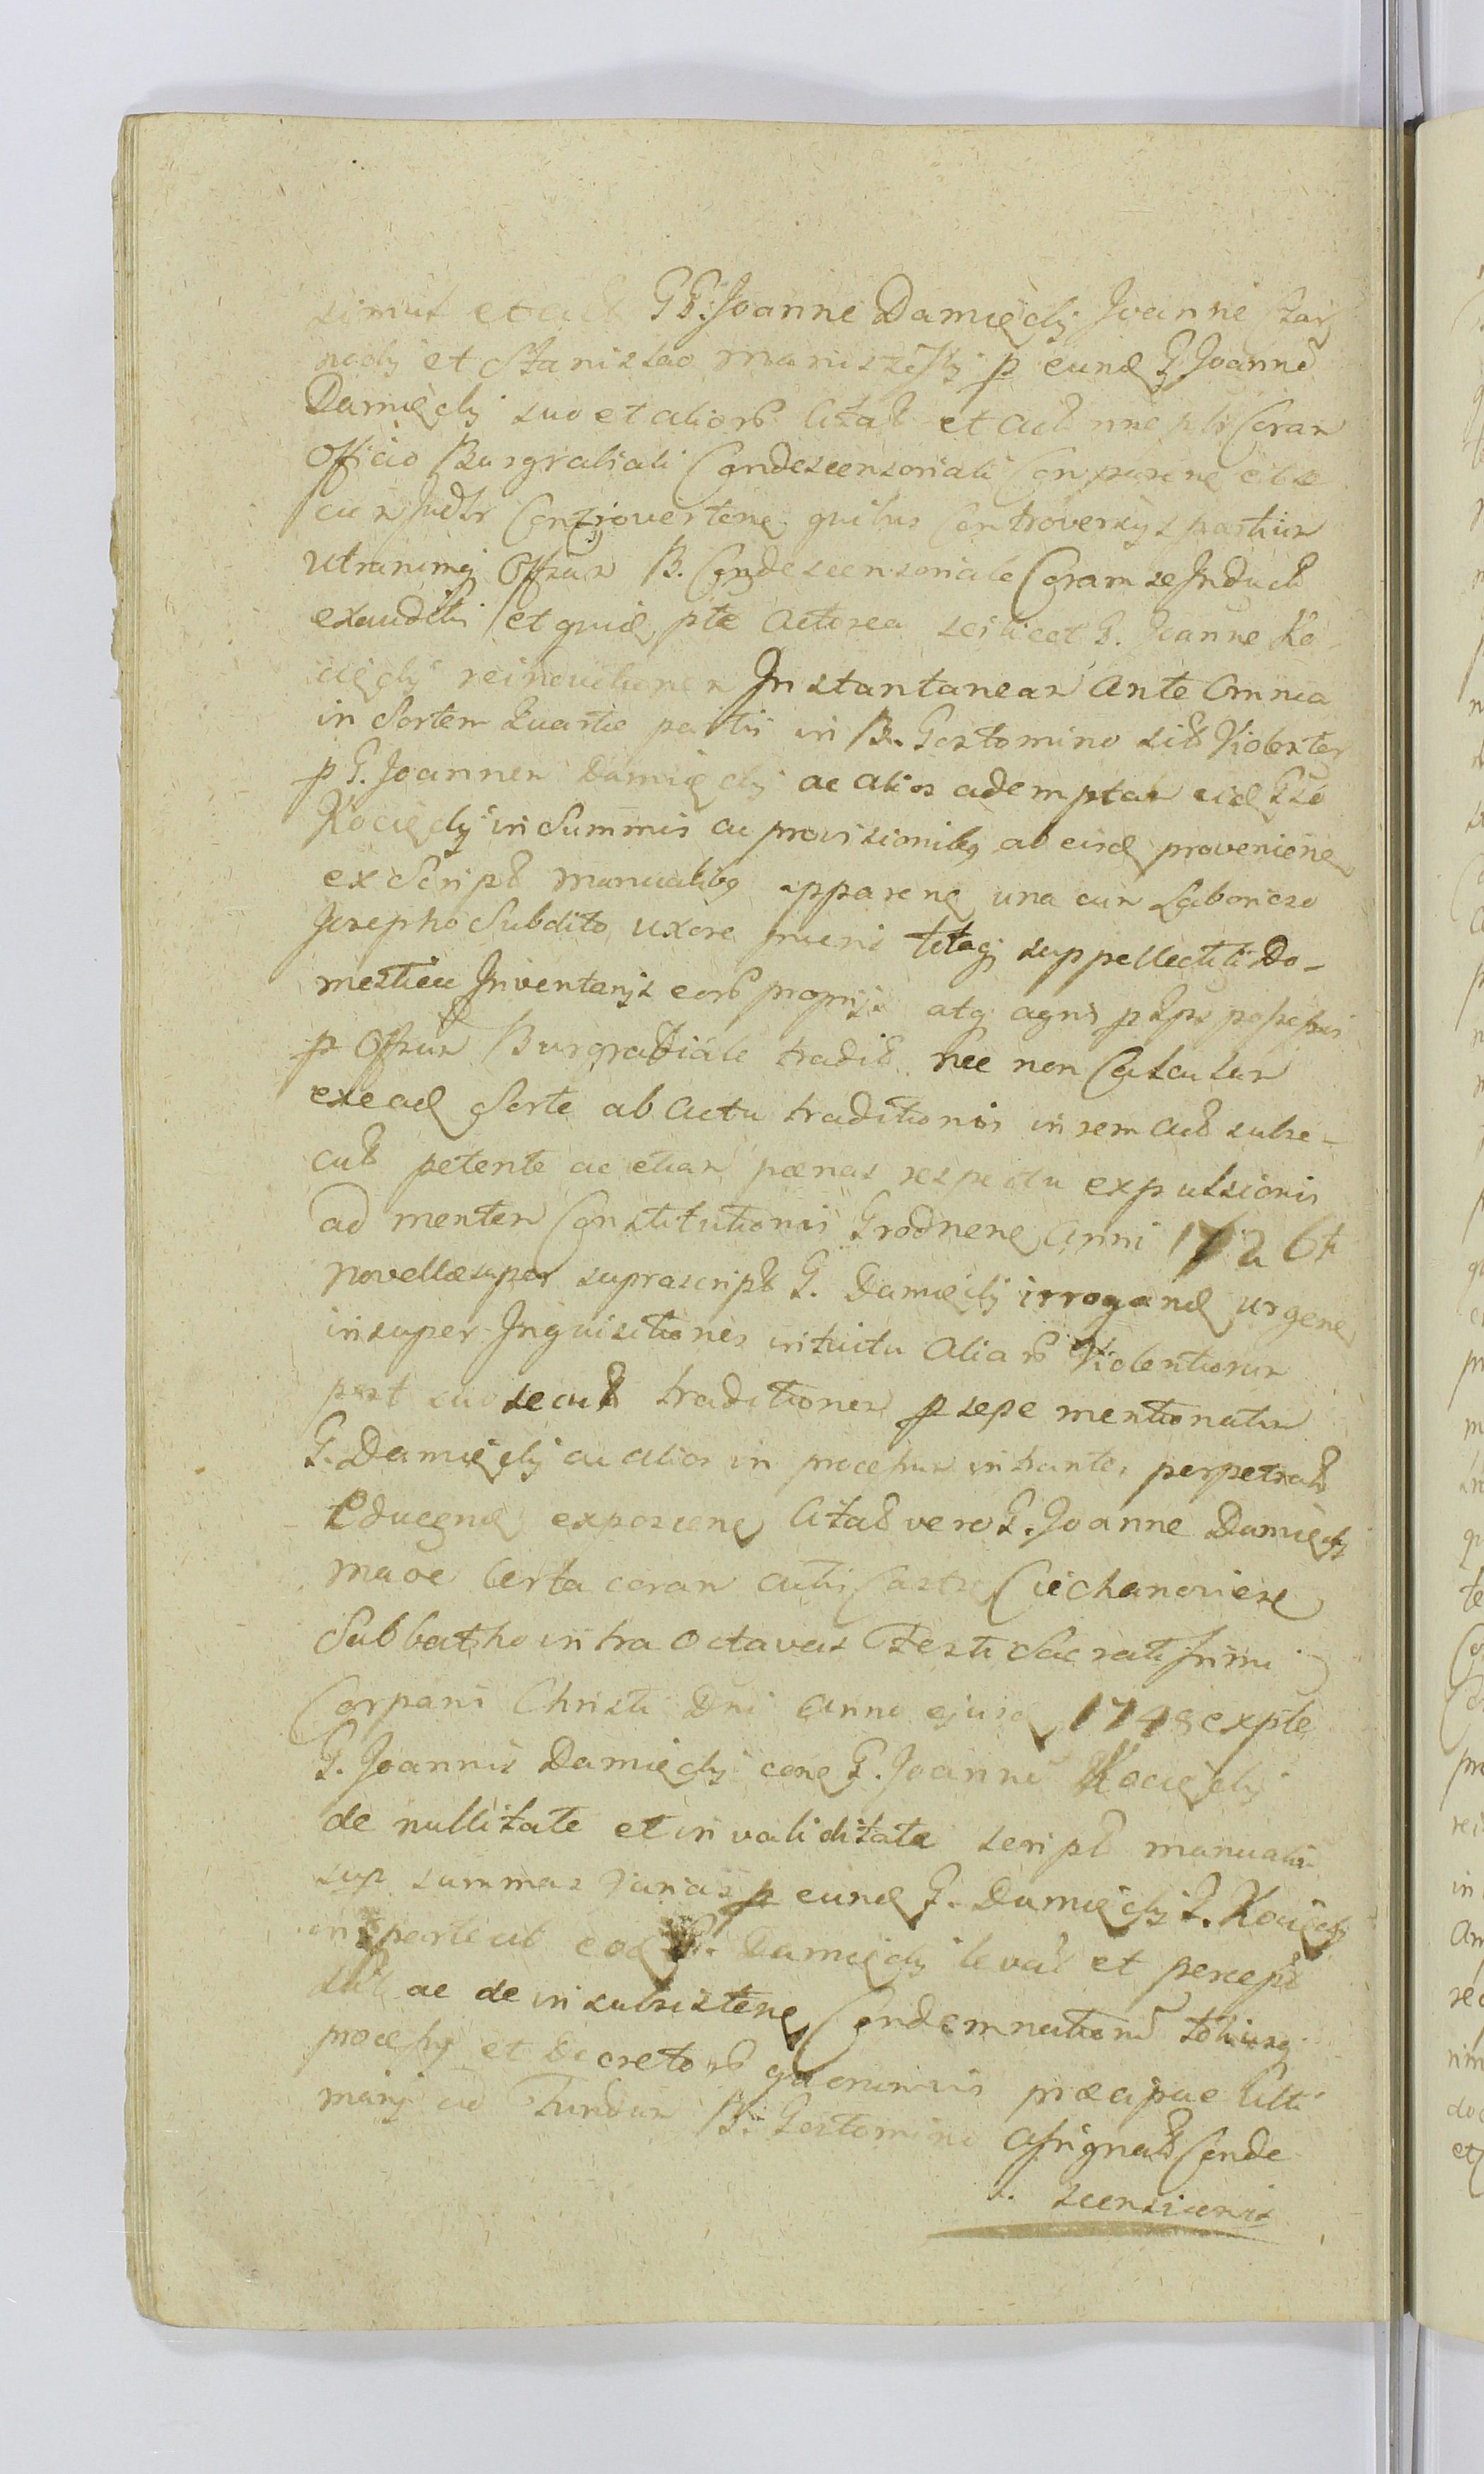 simul et act GG. Joanne Damięcky Joanne Czar
nocky et Stanislao p eund G. Joanne
Damięcky suo et aliorb citat et act nne Coran
Officio Burgrabiali Condescensoriali Conparene
cie n Judtr Controvertene quibus Controversys partiun
utranimq Offiun B. Condescensoriale Coram se Induct
exauditis et quid pte Actorea scilicet G. Joanne Ko
cięcky reinductionem Instantanean Ante Omnia
in Sortem quartæ partis in B. Gostomino sib Violenter
p G. Joannen Damięcky ac alios ademptan eid Gso
Kocięcky in Summis ac provisionibq ab eisd proveniene
ex Script manualibq apparene una cun Laborioso
Josepho Subdito uxore pueris totaq suppellectili Do-
mestica Inventarijs eorb proprijs atq agris
p Offiun Burgrabiale tradit nec non Calculun
ex ead Sorte ab Actu traditionis in rem Act subse-
cut petente ac etian pænas respectu expulsionis
ad menten Constitutionis Grodnene Anni 1726ti
Novellæ super suprascript G. Damięcky irrogand urgene
insuper Inquisitiones intuitu Aliarb Violentiarun
post subsecut traditionen p sepe mentionatun
G. Damięcky ac alios in processun intrantes perpetrat
Educend exposcene Citat vero G. Joanne Damięcky
coran actis Castr Ciechanoviene
Sabbatho intra Octavas Festi Sacratissimi
Corporis Christi Dni Anno ejusd 1748 ex pte
G. Joannis Damięcky cone G. Joanne Kocięcky
de nullitate et invaliditate script manualis
sup summas varias p eund G. Damięcky G. Kocięcky
in parte ab eod G. Damięcky levat et percept
dat ac de insubsistene Condemnatione totiusq
processq et Decretorb quorumvis præcipue Ulti
marij ad Fundun B. Gostomino Assignat Conde
scensionis